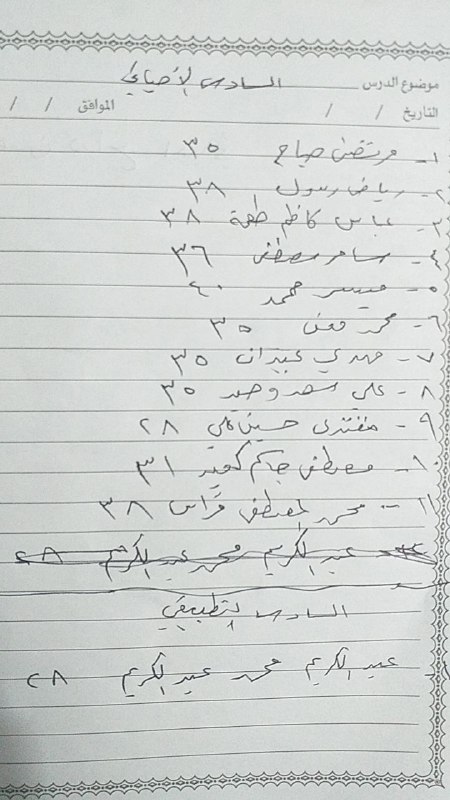 موضوع الدرس السادس الاحيائي
التاريخ / / الموافق / /
١- مرتضى صباح ٣٥
٢- رياض رسول ٣٨
٣- عباس كاظم طعمة ٣٨
٤- سامر مصطفى ٣٦
٥- ميسر محمد ٤٠
٦- محمد معن ٣٥
٧- مهدي عبيدان ٣٥
٨- علي سعد وحيد ٣٥
٩- مقتدى حسين علي ٢٨
١٠- مصطفى جاسم كعيد ٣١
١١- محمد المصطفى فراس ٣٨
عبد الكريم محمد عبد الكريم ٢٨
السادس التطبيقي
١- عبد الكريم محمد عبد الكريم ٢٨